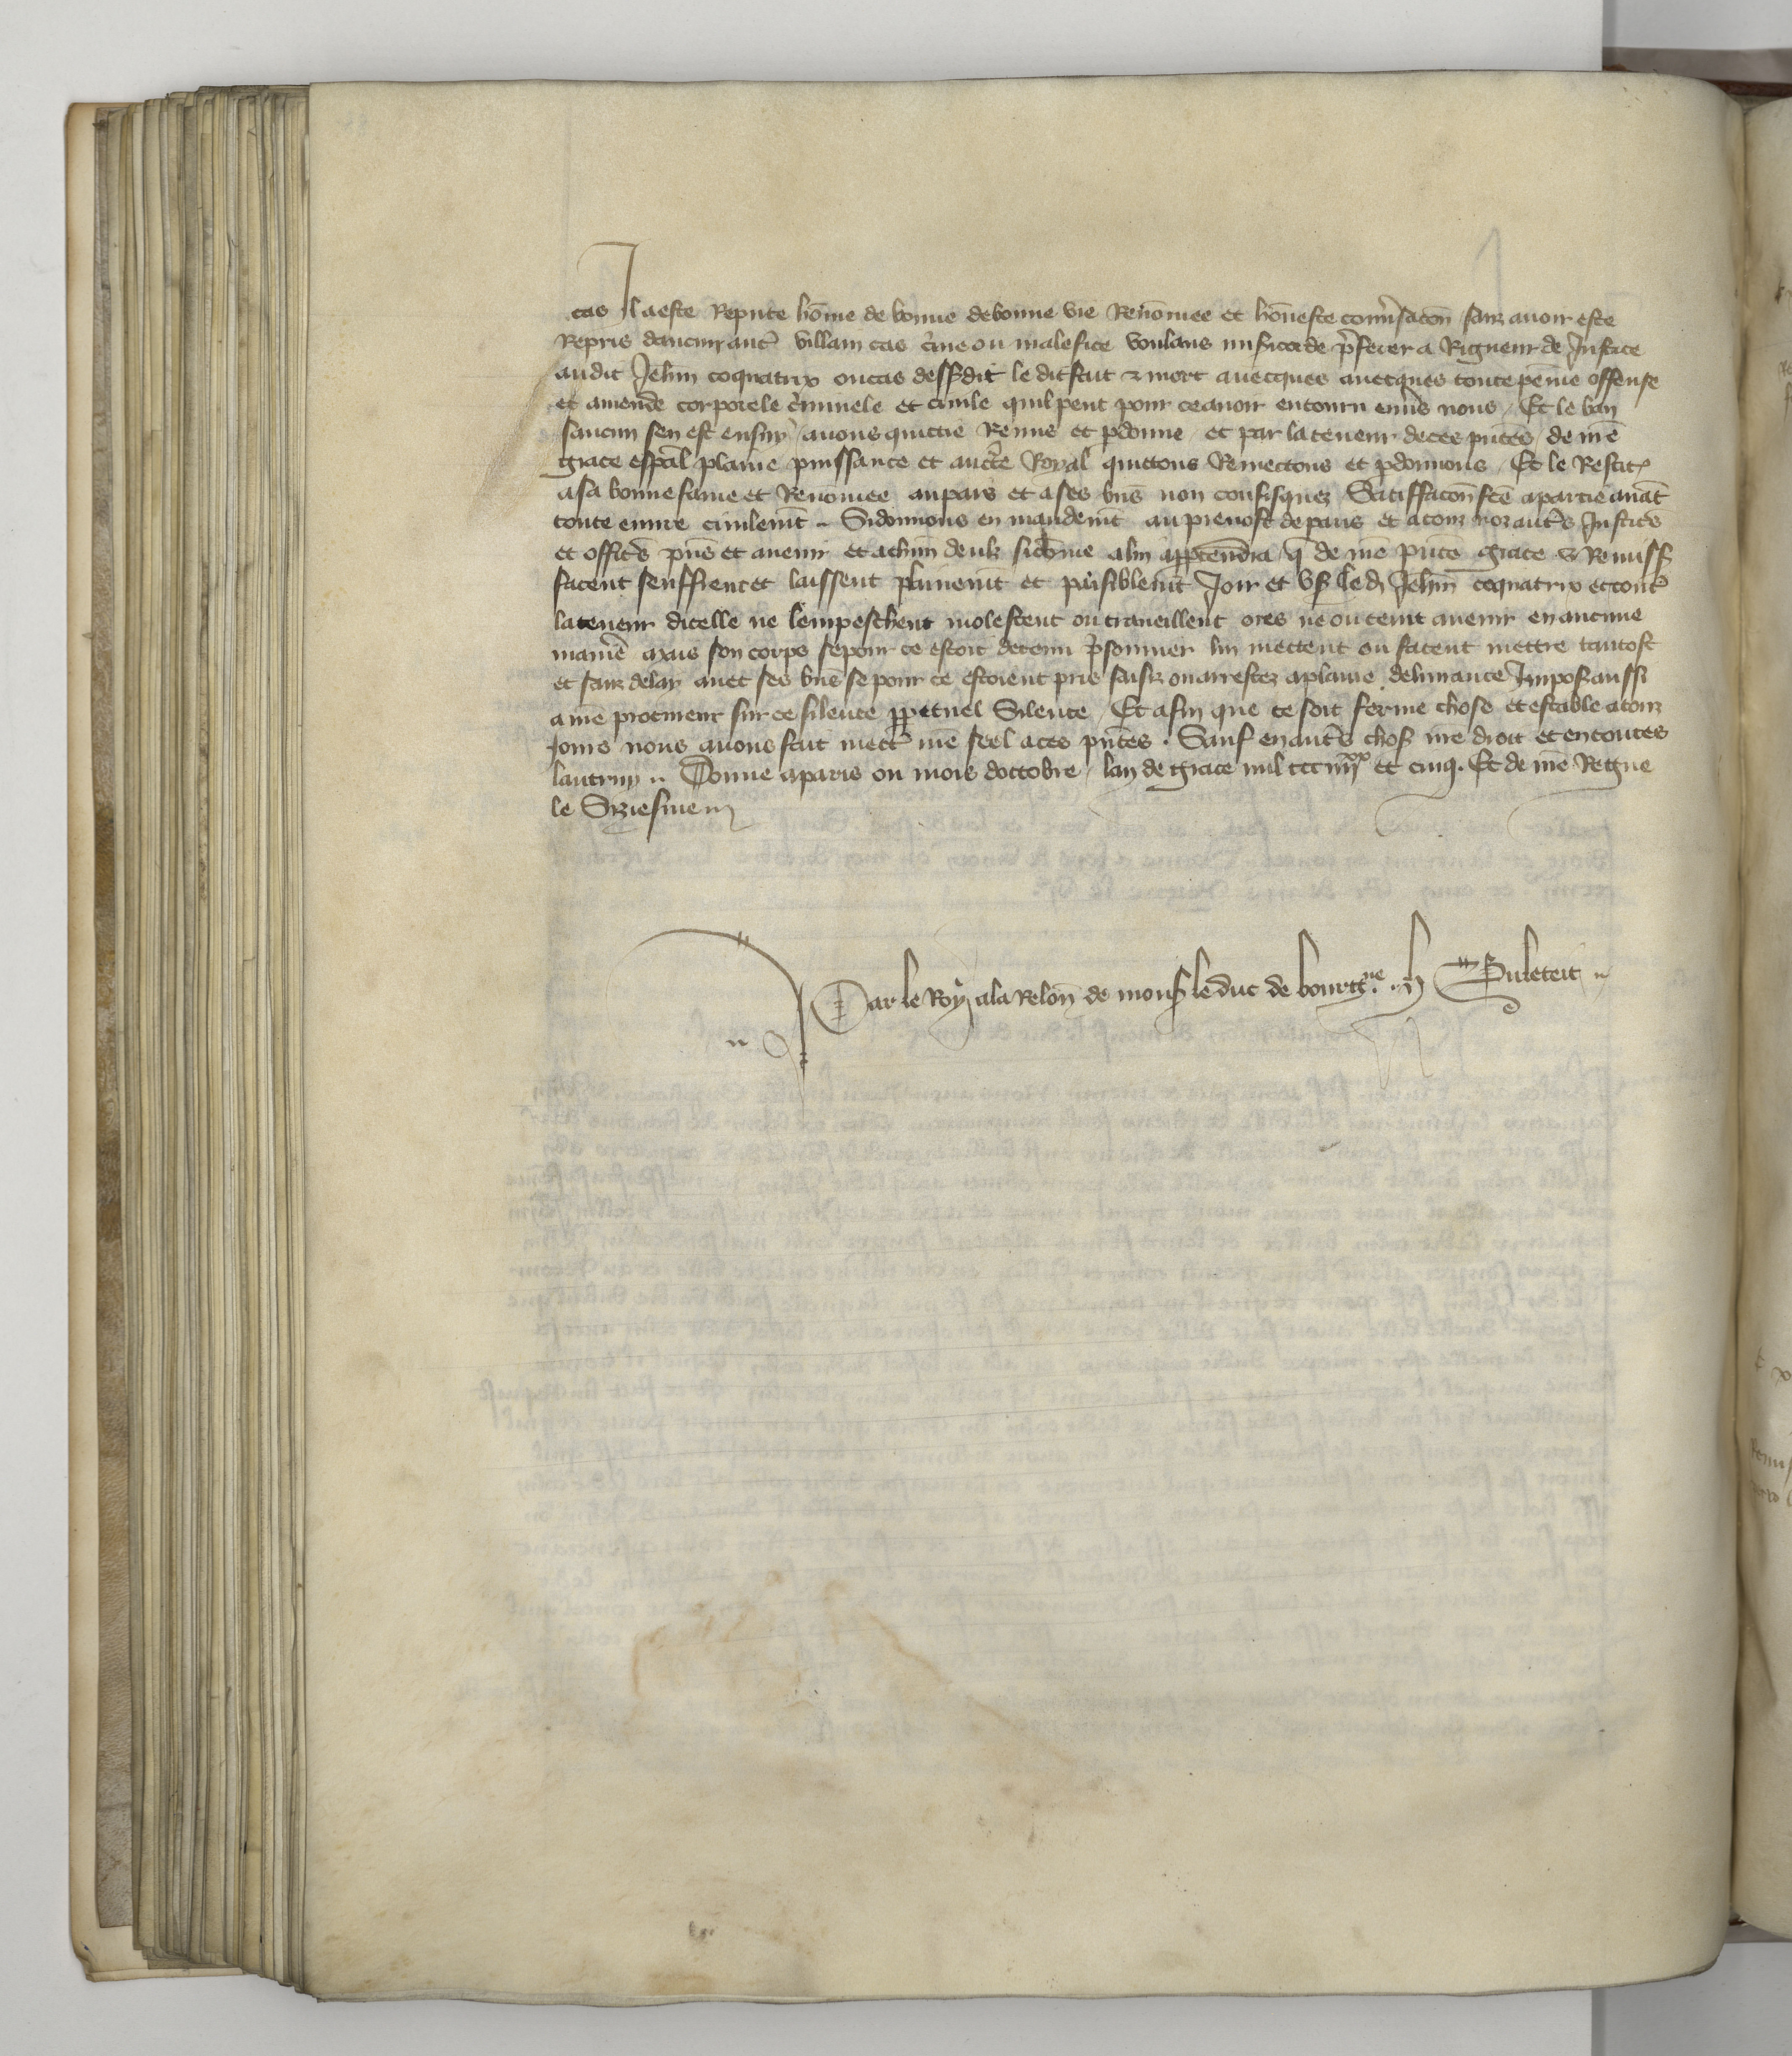 cas Il a este Repute hõme de bonne debonne vie Renõmee et hõneste conv̾sacõn sanz avoir este
Repris daucun aut̾ villain cas c̾me ou malefice voulans mis̾icorde p̾ferer a Rigueur de Justice
audit Jehan coquatrix ou cas dessusdit le dit fait & mort avecques avecques toute peine offense
et amende corporele c̾minele et civile quil peut pour ce avoir encouru env̾s nous / Et le ban
saucun sen est ensuy / avons quictie Remis et p̱donne / et par la teneur de ces p̃ntes / de n̄re
grace esp̃al plaine puissance et aucte Royal quictons Remectons et p̱donnons / Et le Restit̾
a sa bonne fame et Renomee au pais et a ses bñs non confisquez / Satisfacõn f̃te a partie avãt
toute euvre civilem̃t ~ Si donnons en mandem̃t au prevost de paris et a touz noz aut̾s Justic̾s
et offic̾s p̃ns et avenir et a chũn deulx si cõme a luy app̱tendra / q̃ de n̄re p̃nte grace & Remiss̾
facent seuffrent et laissent plainem̃t et paisiblem̃t Joir et us̾ led̾ Jehan coquatrix et cont̾
la teneur dicelle ne lempeschent molestent ou traveillent ores ne ou temps avenir en aucune
maniẽ mais son corps se pour ce estoit detenu p̾sonnier lui mettent ou facent mettre tantost
et sanz delay avec ses bñs se pour ce estoient pris saisiz ou arrestez a plaine delivrance Impos̾ aussi
a n̄re procureur sur ce silence pp̱etuel Silence / Et afin que ce soit ferme chose et estable a touz
jours nous avons fait mect̾ n̄re seel a ces p̃ntes . Sauf en aut̾s chos̾ n̄re droit et en toutes
lautruy ~ Donne a paris ou mois doctobre / lan de grace mil ccc iiijxx et cinq . Et de n̄re Regne
le Siziesme
Par le Roy a la Relõn de mons̾ le duc de bourg̃ne . h Guleteit